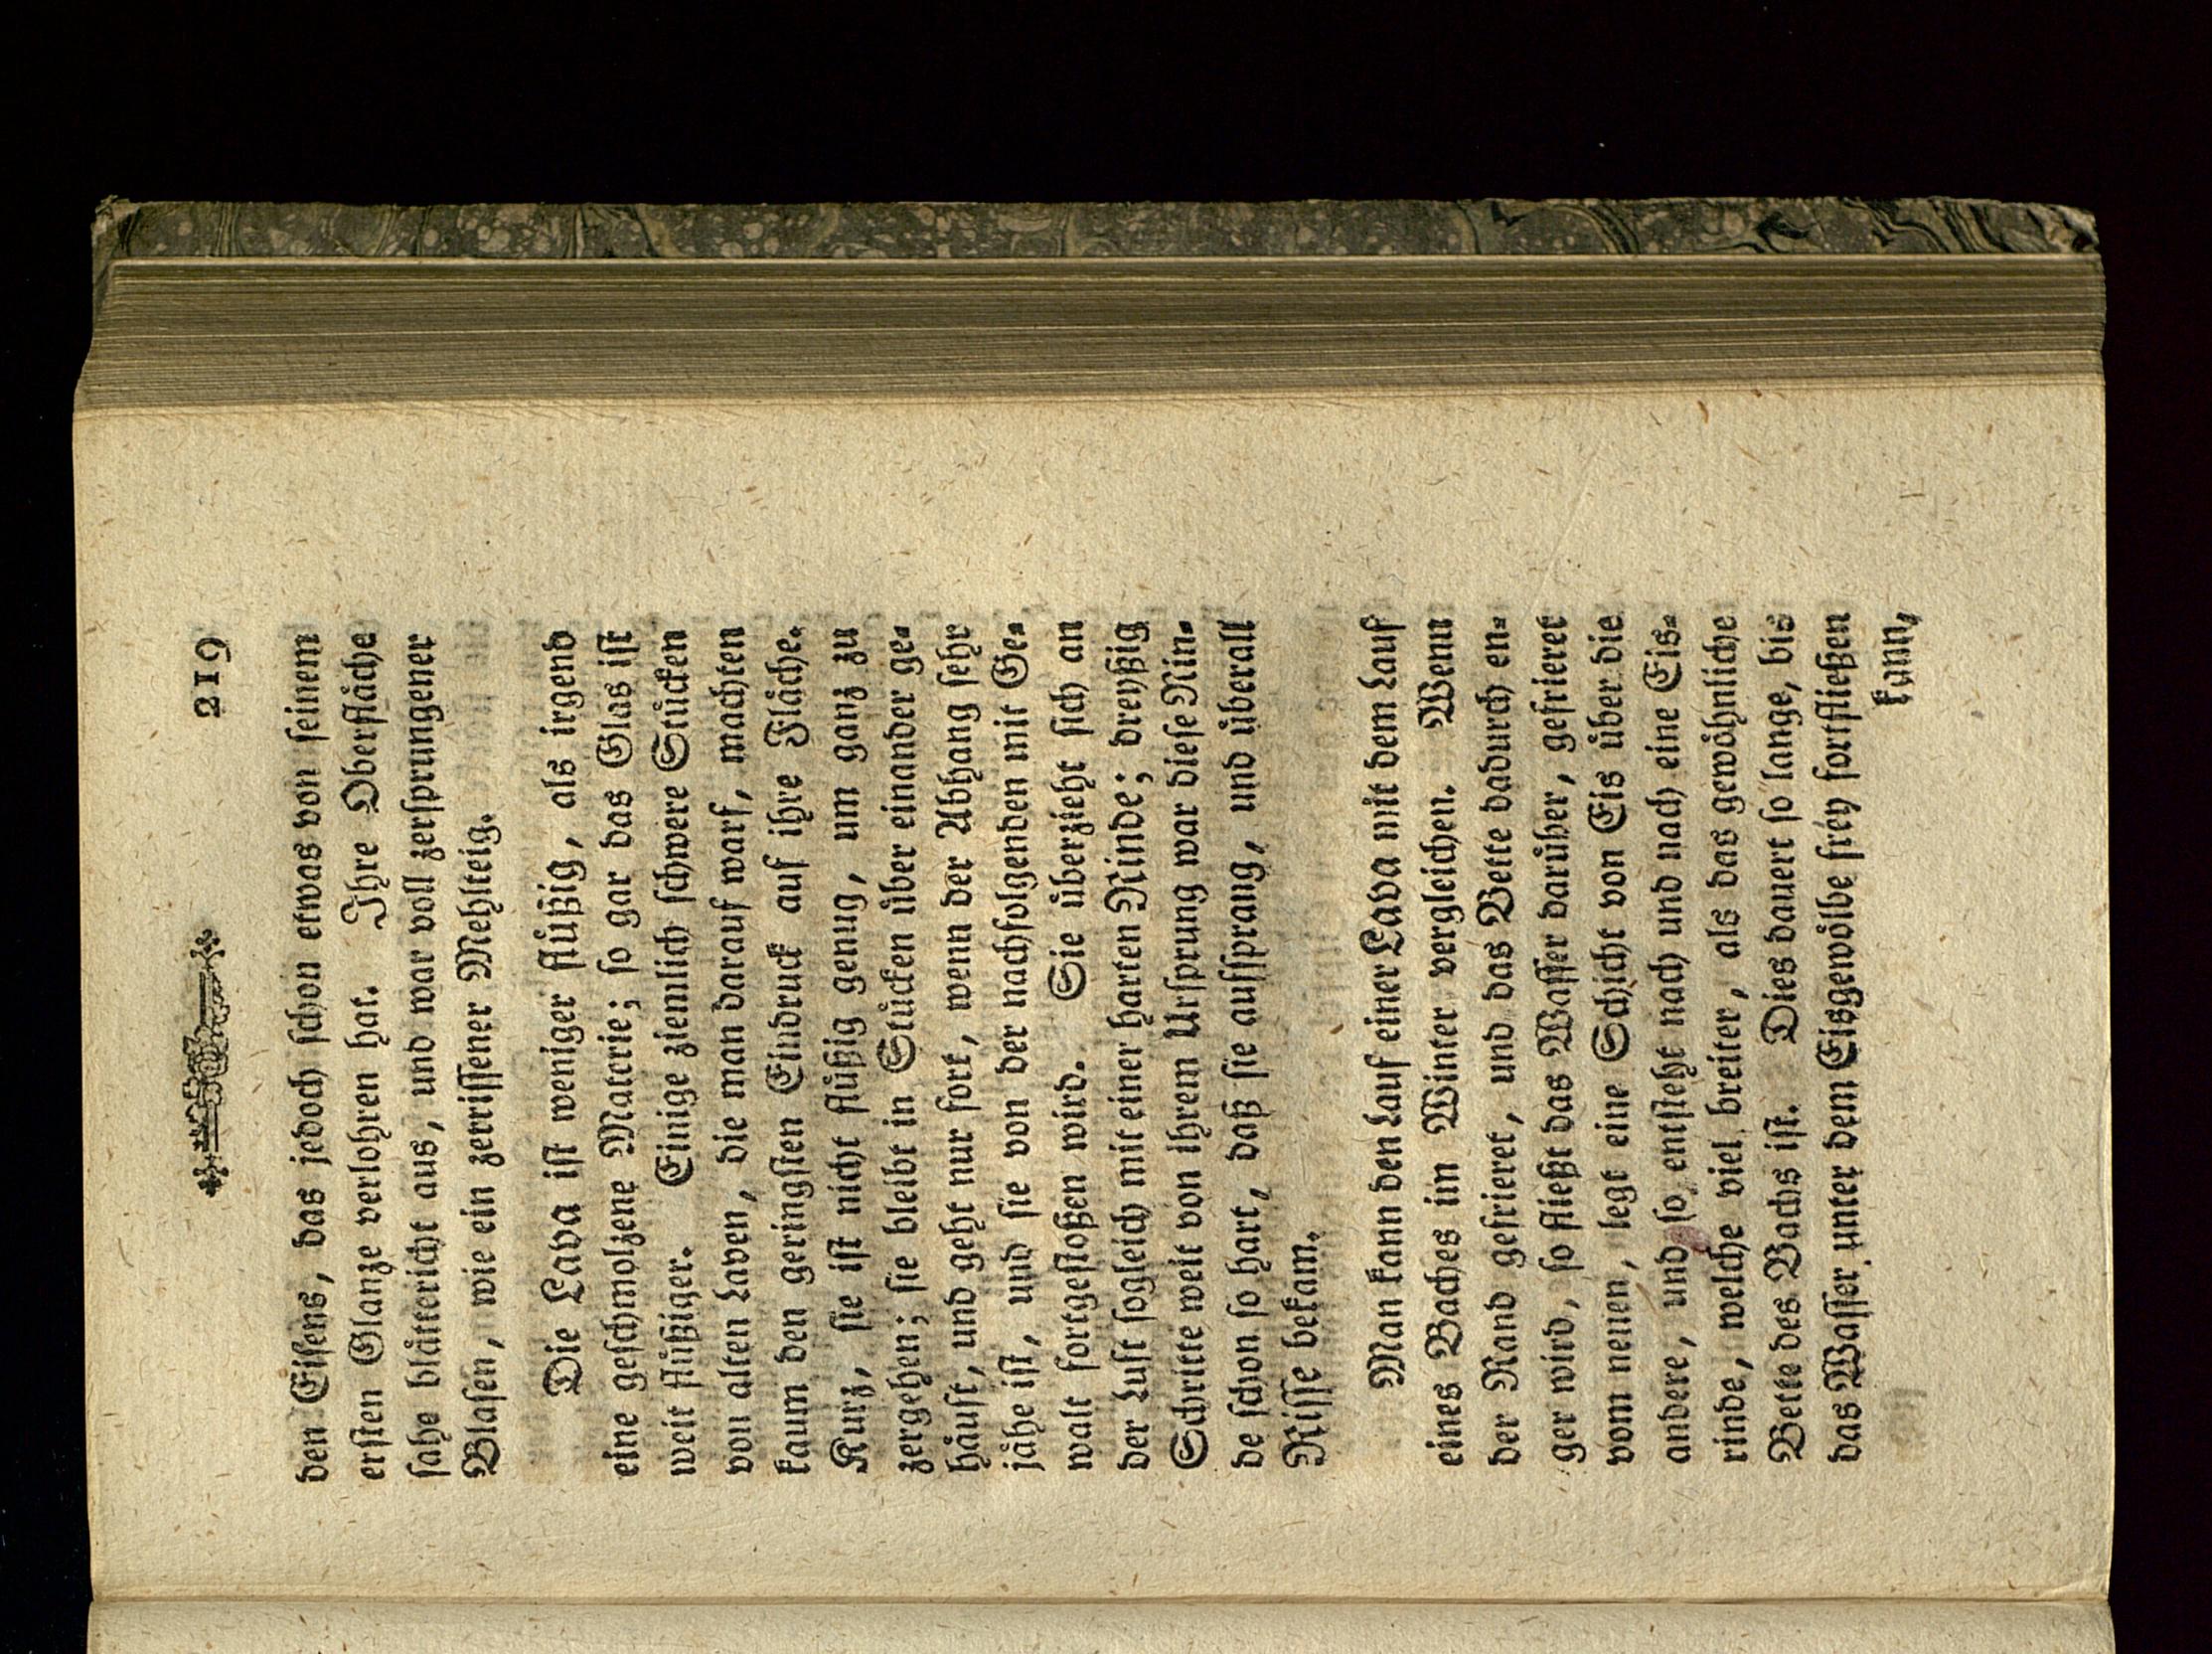 219
den Eiſens, das jedoch ſchon etwas von ſeinem
erſten Glanze verlohren hat. Ihre Oberflaͤche
ſahe blaͤttericht aus, und war voll zerſprungener
Blaſen, wie ein zerriſſener Mehlteig.
Die Lava iſt weniger fluͤßig, als irgend
eine geſchmolzene Materie; ſo gar das Glas iſt
weit fluͤßiger. Einige ziemlich ſchwere Stuͤcken
von alten Laven, die man darauf warf, machten
kaum den geringſten Eindruck auf ihre Flaͤche.
Kurz, ſie iſt nicht fluͤßig genug, um ganz zu
zergehen; ſie bleibt in Stuͤcken uͤber einander ge-
haͤuft, und geht nur fort, wenn der Abhang ſehr
jaͤhe iſt, und ſie von der nachfolgenden mit Ge-
walt fortgeſtoßen wird. Sie uͤberzieht ſich an
der Luft ſogleich mit einer harten Rinde; dreyßig
Schritte weit von ihrem Urſprung war dieſe Rin-
de ſchon ſo hart, daß ſie aufſprang, und uͤberall
Riſſe bekam.
Man kann den Lauf einer Lava mit dem Lauf
eines Baches im Winter vergleichen. Wenn
der Rand gefrieret, und das Bette dadurch en-
ger wird, ſo fließt das Waſſer daruͤber, gefrieret
vom neuen, legt eine Schicht von Eis uͤber die
andere, und ſo entſteht nach und nach eine Eis-
rinde, welche viel breiter, als das gewoͤhnliche
Bette des Bachs iſt. Dies dauert ſo lange, bis
das Waſſer unter dem Eisgewoͤlbe frey fortfließen
kann,